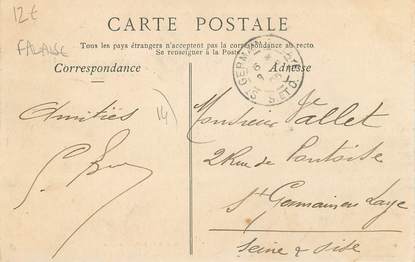 12€
FALAISE
CARTE POSTALE
Tous les pays étrangers n'acceptent pas la correspondance au recto.
Se renseigner à la Poste.
Correspondance
Adresse
ST GERMAIN
S. ET O.
Amitiés
14
Monsieur Vallet
2 Rue de Pontoise
St Germain en Laye
Seine & Oise